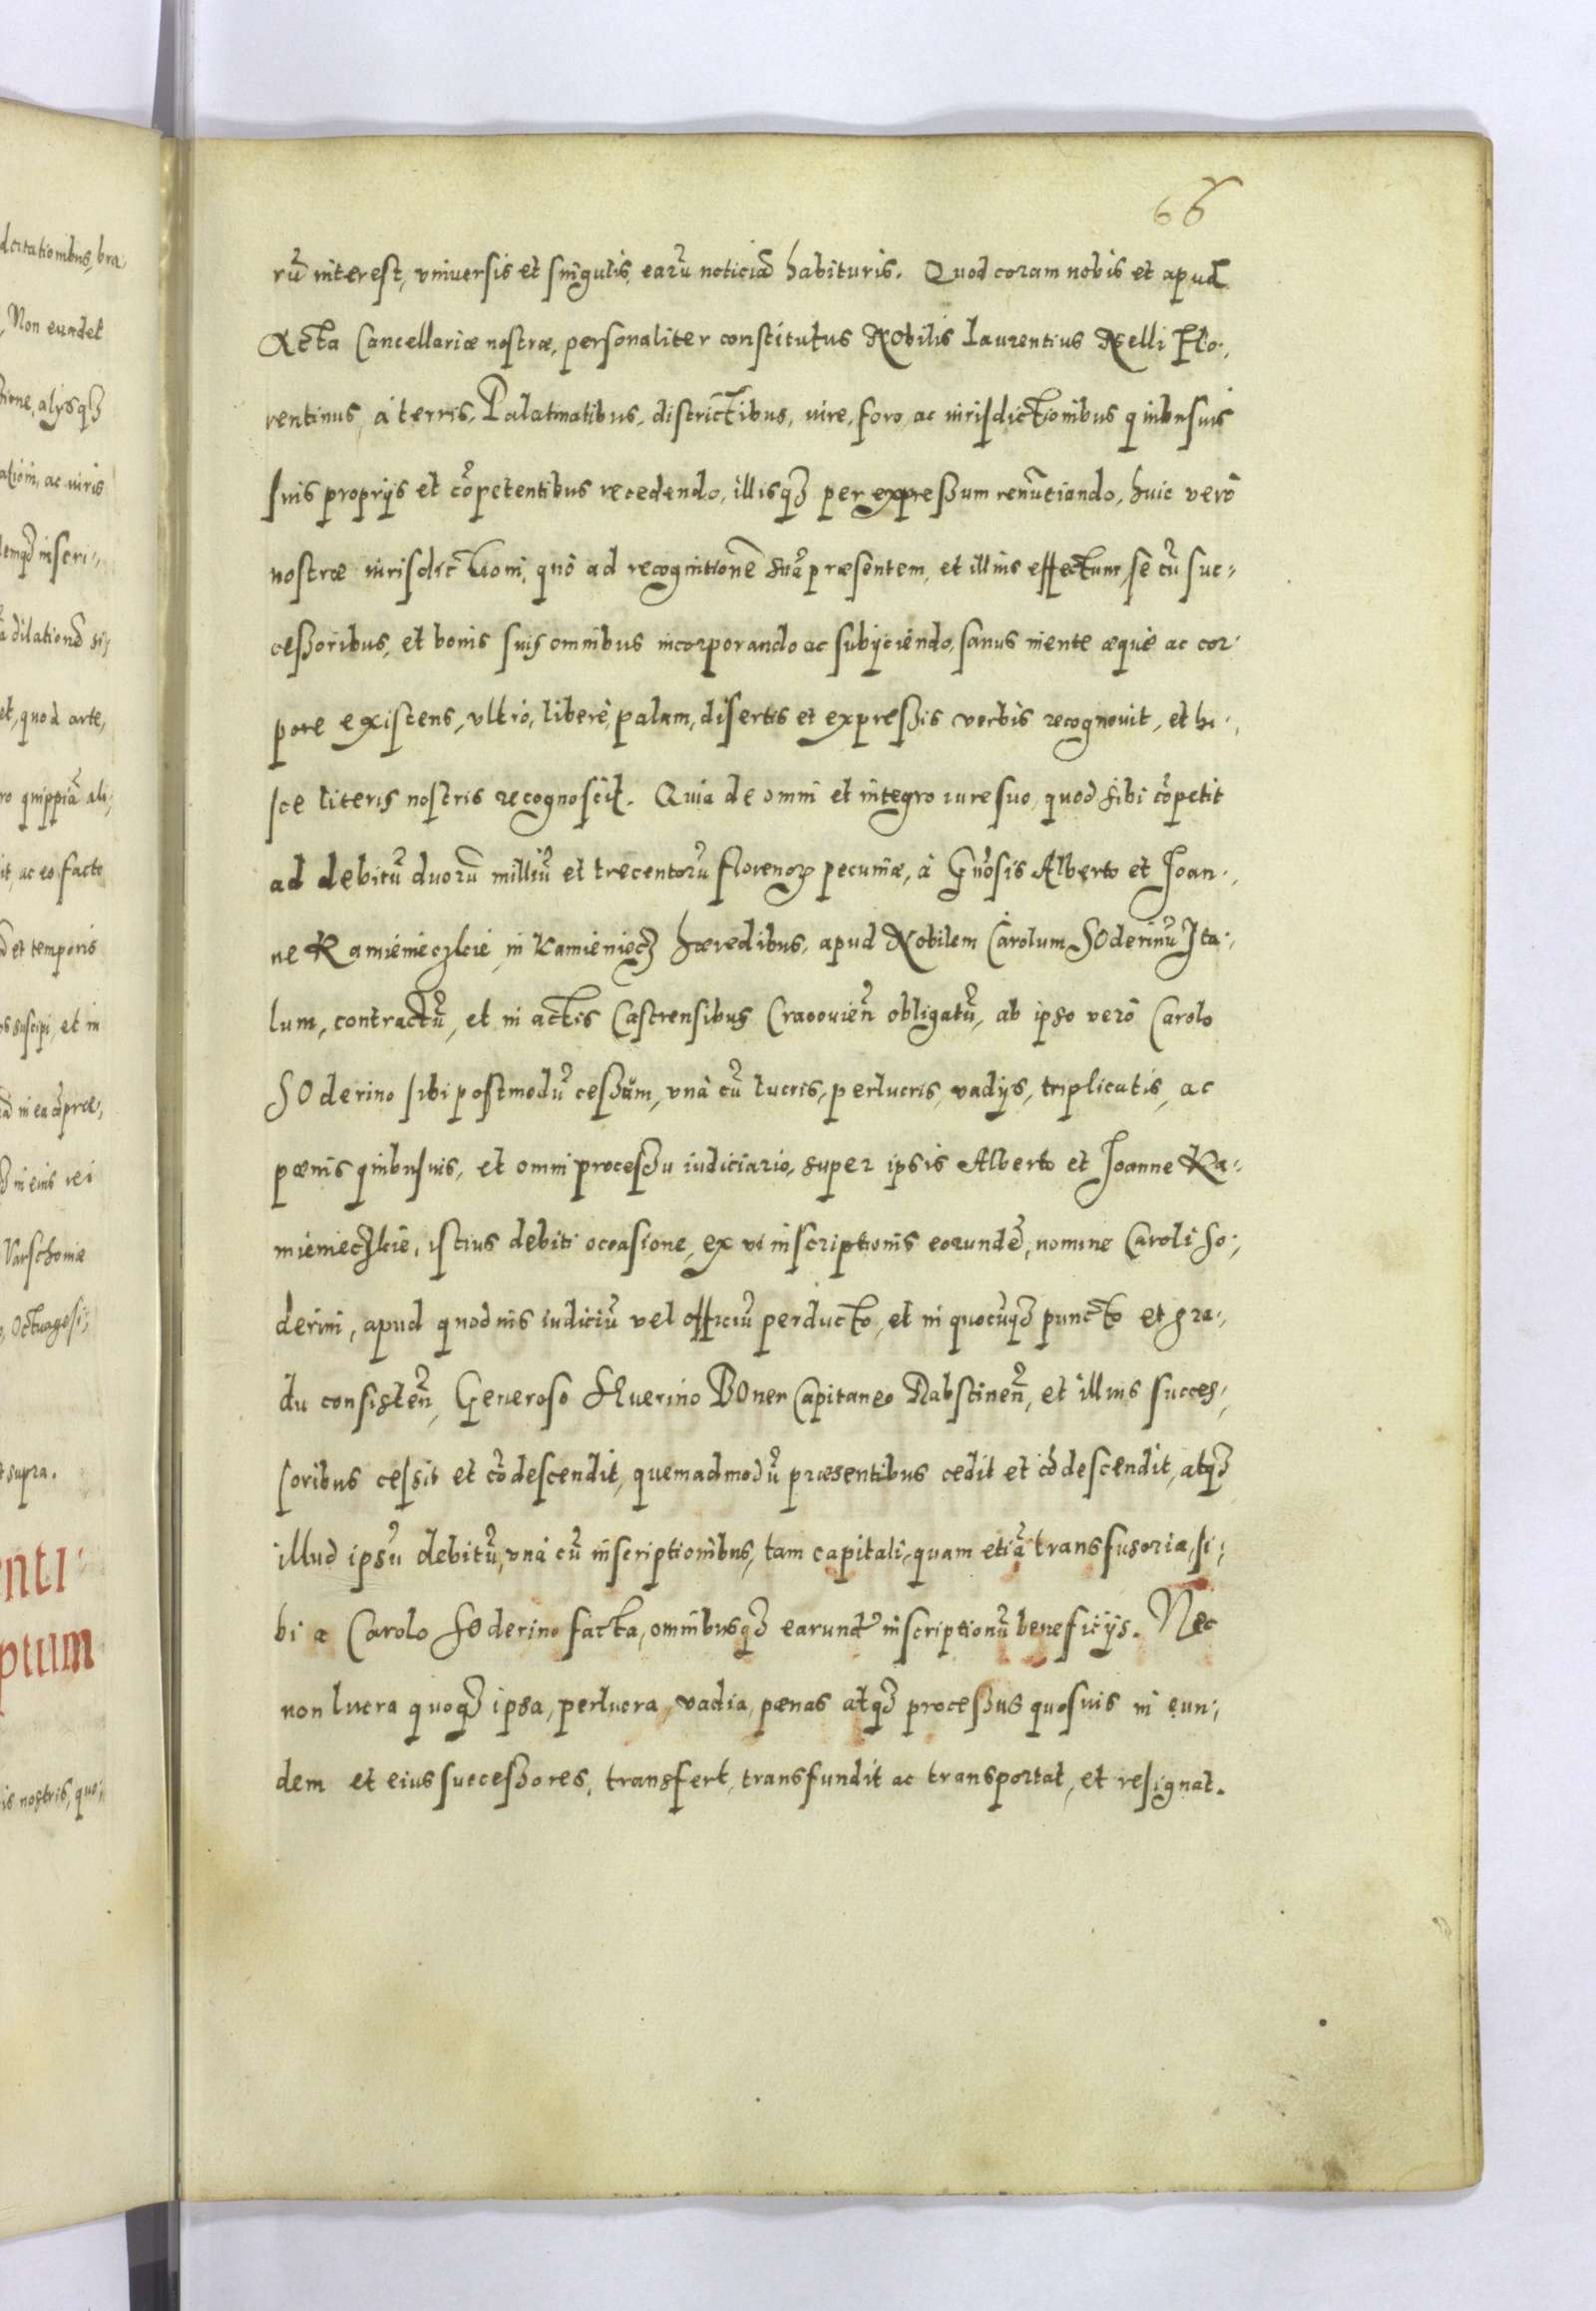 66
rũ interest, vniuersis et singulis, earũ noticiã habituris. Quod coram nobis et apud
Acta Cancellariæ nostræ, personaliter constitutus Nobilis Laurentius Nelli Flo-,
rentinus, á terris, Palatinatibus, districtibus, iure, foro, ac iurisdictionibus quibusuis
suis proprijs et cõpetentibus recedendo, illisqȝ per expreßum renũciando, huic verò
nostræ iurisdictioni, quò ad recognitionẽ suã præsentem, et illius effectum, se cũ suc-
ceßoribus, et bonis suis omnibus incorporando ac subijciendo, sanus mente æquè ac cor-
pore existens, vltrò, liberè, palam, disertis et expreßis verbis recognouit, et hi-,
sce literis nostris recognoscit. Quia de omni et integro iure suo, quod sibi cõpetit
ad debitũ duorũ milliũ et trecentorũ florenoꝝ pecuniæ, à Gñosis Alberto et Joan-,
ne Kamienieczkie, in Kamieniecz hæredibus, apud Nobilem Carolum SOderinũ Ita-,
lum, contractũ, et in actis Castrensibus Cracouieñ obligatũ, ab ipso verò Carolo
SOderino sibi postmodũ ceßum, vnà cũ lucris, perlucris, vadijs, triplicatis, ac
pœnis quibusuis, et omni proceßu iudiciario, super ipsis Alberto et Joanne Ka-
mienieczkie, istius debiti occasione, ex vi inscriptionis eorundẽ, nomine Caroli So-,
derini, apud quoduis iudiciũ vel officiũ perducto, et in quocũqȝ puncto et gra-,
du consisteñ, Generoso SEuerino BOner Capitaneo Rabstineñ, et illius succes-,
soribus cessit et cõdescendit, quemadmodũ præsentibus cedit et cõdescendit, atqȝ
illud ipsũ debitũ, vnà cũ inscriptionibus, tam capitali, quam etiã transfusoria, si-,
bi a Carolo SOderino facta, omnibusqȝ earundẽ inscriptionũ beneficijs. Nec
non lucra quoqȝ ipsa, perlucra, vadia, pœnas atqȝ proceßus quosuis in eun-,
dem et eius succeßores, transfert, transfundit ac transportat, et resignat.